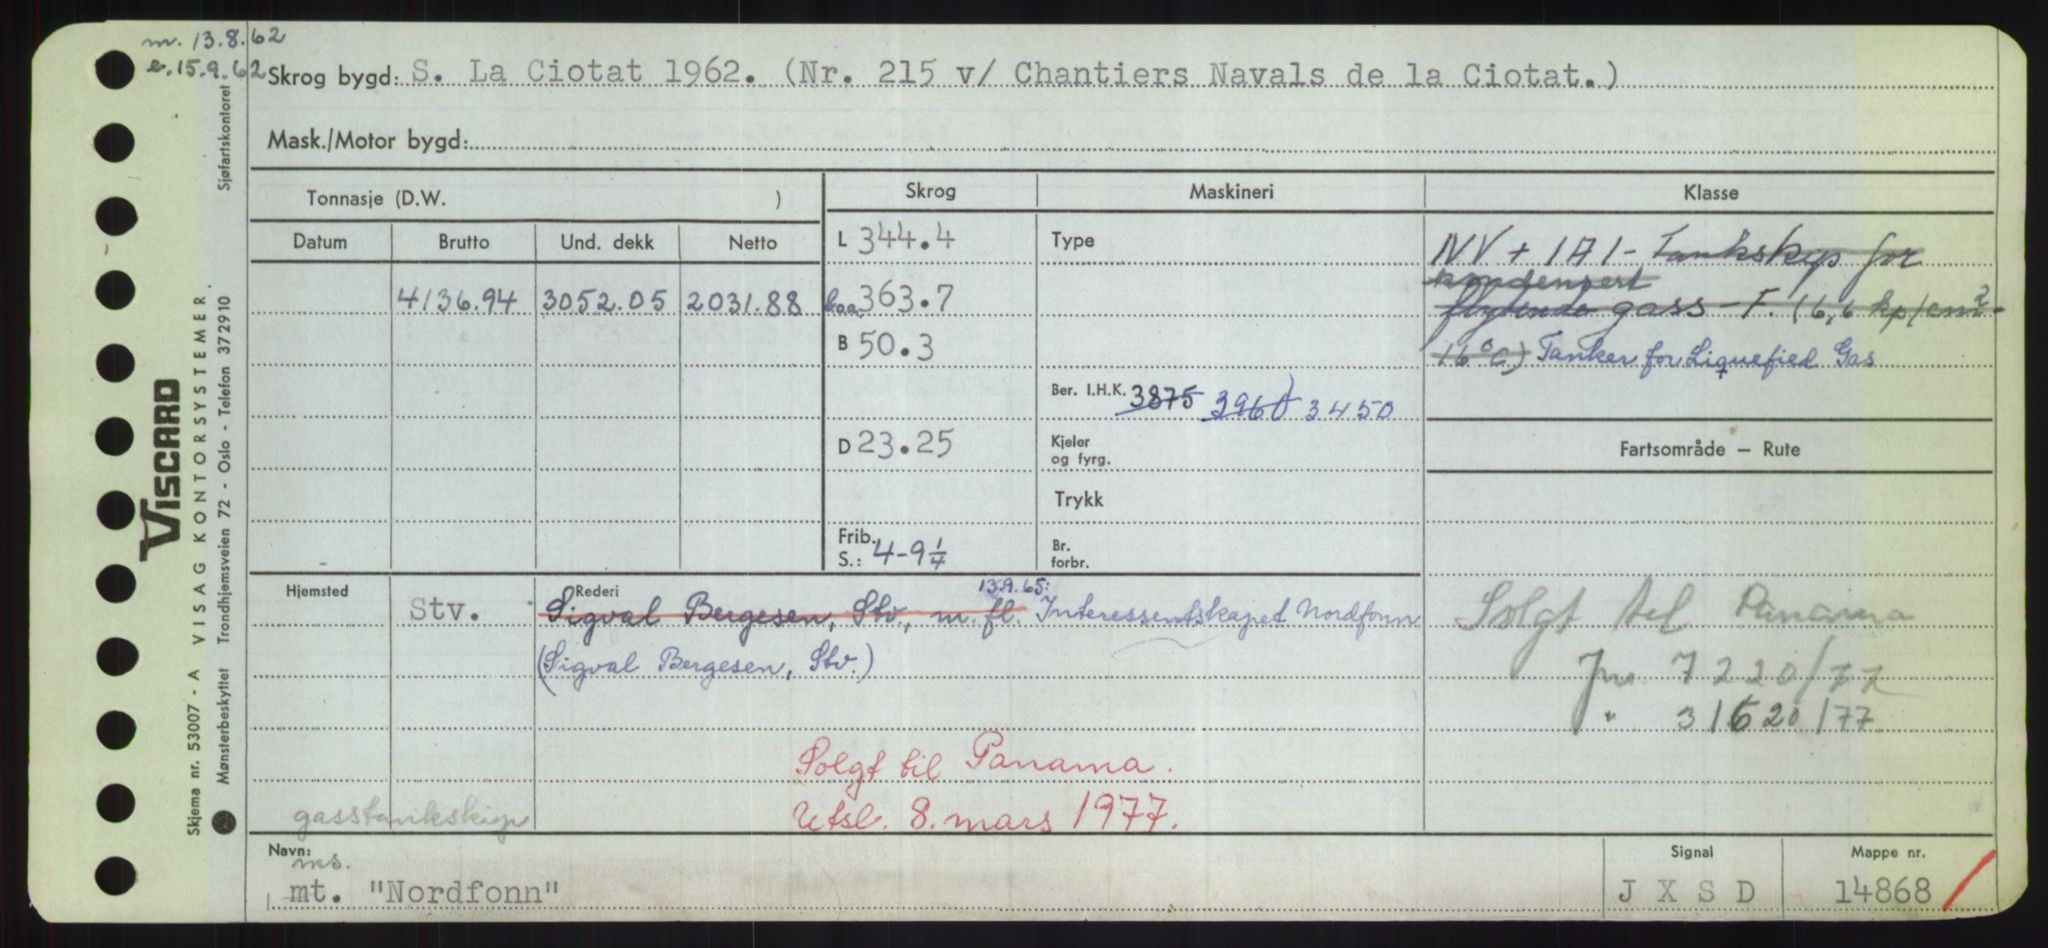 m. 13.8.62
e. 15.9.62
Skrog bygd: S. La Ciotat 1962. (Nr. 215 v/ Chantiers Navals de la Ciotat.)
Mask./Motor bygd:
Tonnasje (D.W. )
Skrog
Maskineri
Klasse
Datum
Brutto
Und. dekk
Netto
4136.94
3052.05
2031.88
L 344.4
Loa. 363.7
B 50.3
D 23.25
Frib.
S.: 4-9 1/4
Type
Ber. I.H.K. 3875 3960 3450
Kjeler
og fyrg.
Trykk
Br.
forbr.
NV + 1A1 - Tankskip for
kondensert
flytende gass - T. (6,6 kp/cm2 -
16°C) Tanker for Liquefied Gas
Fartsområde — Rute
Solgt til Panama
Jnr. 7220/77
" 31620/77
Hjemsted
Stv.
Rederi
13.9.65:
Sigval Bergesen, Stv., m. fl. Interessentskapet Nordfonn
(Sigval Bergesen, Stv.)
Solgt til Panama.
Utsl. 8. mars 1977.
gasstankskip
Navn:
ms.
mt. "Nordfonn"
Signal
J X S D
Mappe nr.
14868
VISCARD
Skjema nr. 53007 - A VISAG KONTORSYSTEMER
Mønsterbeskyttet Trondhjemsveien 72 - Oslo - Telefon 372910
Sjøfartskontoret